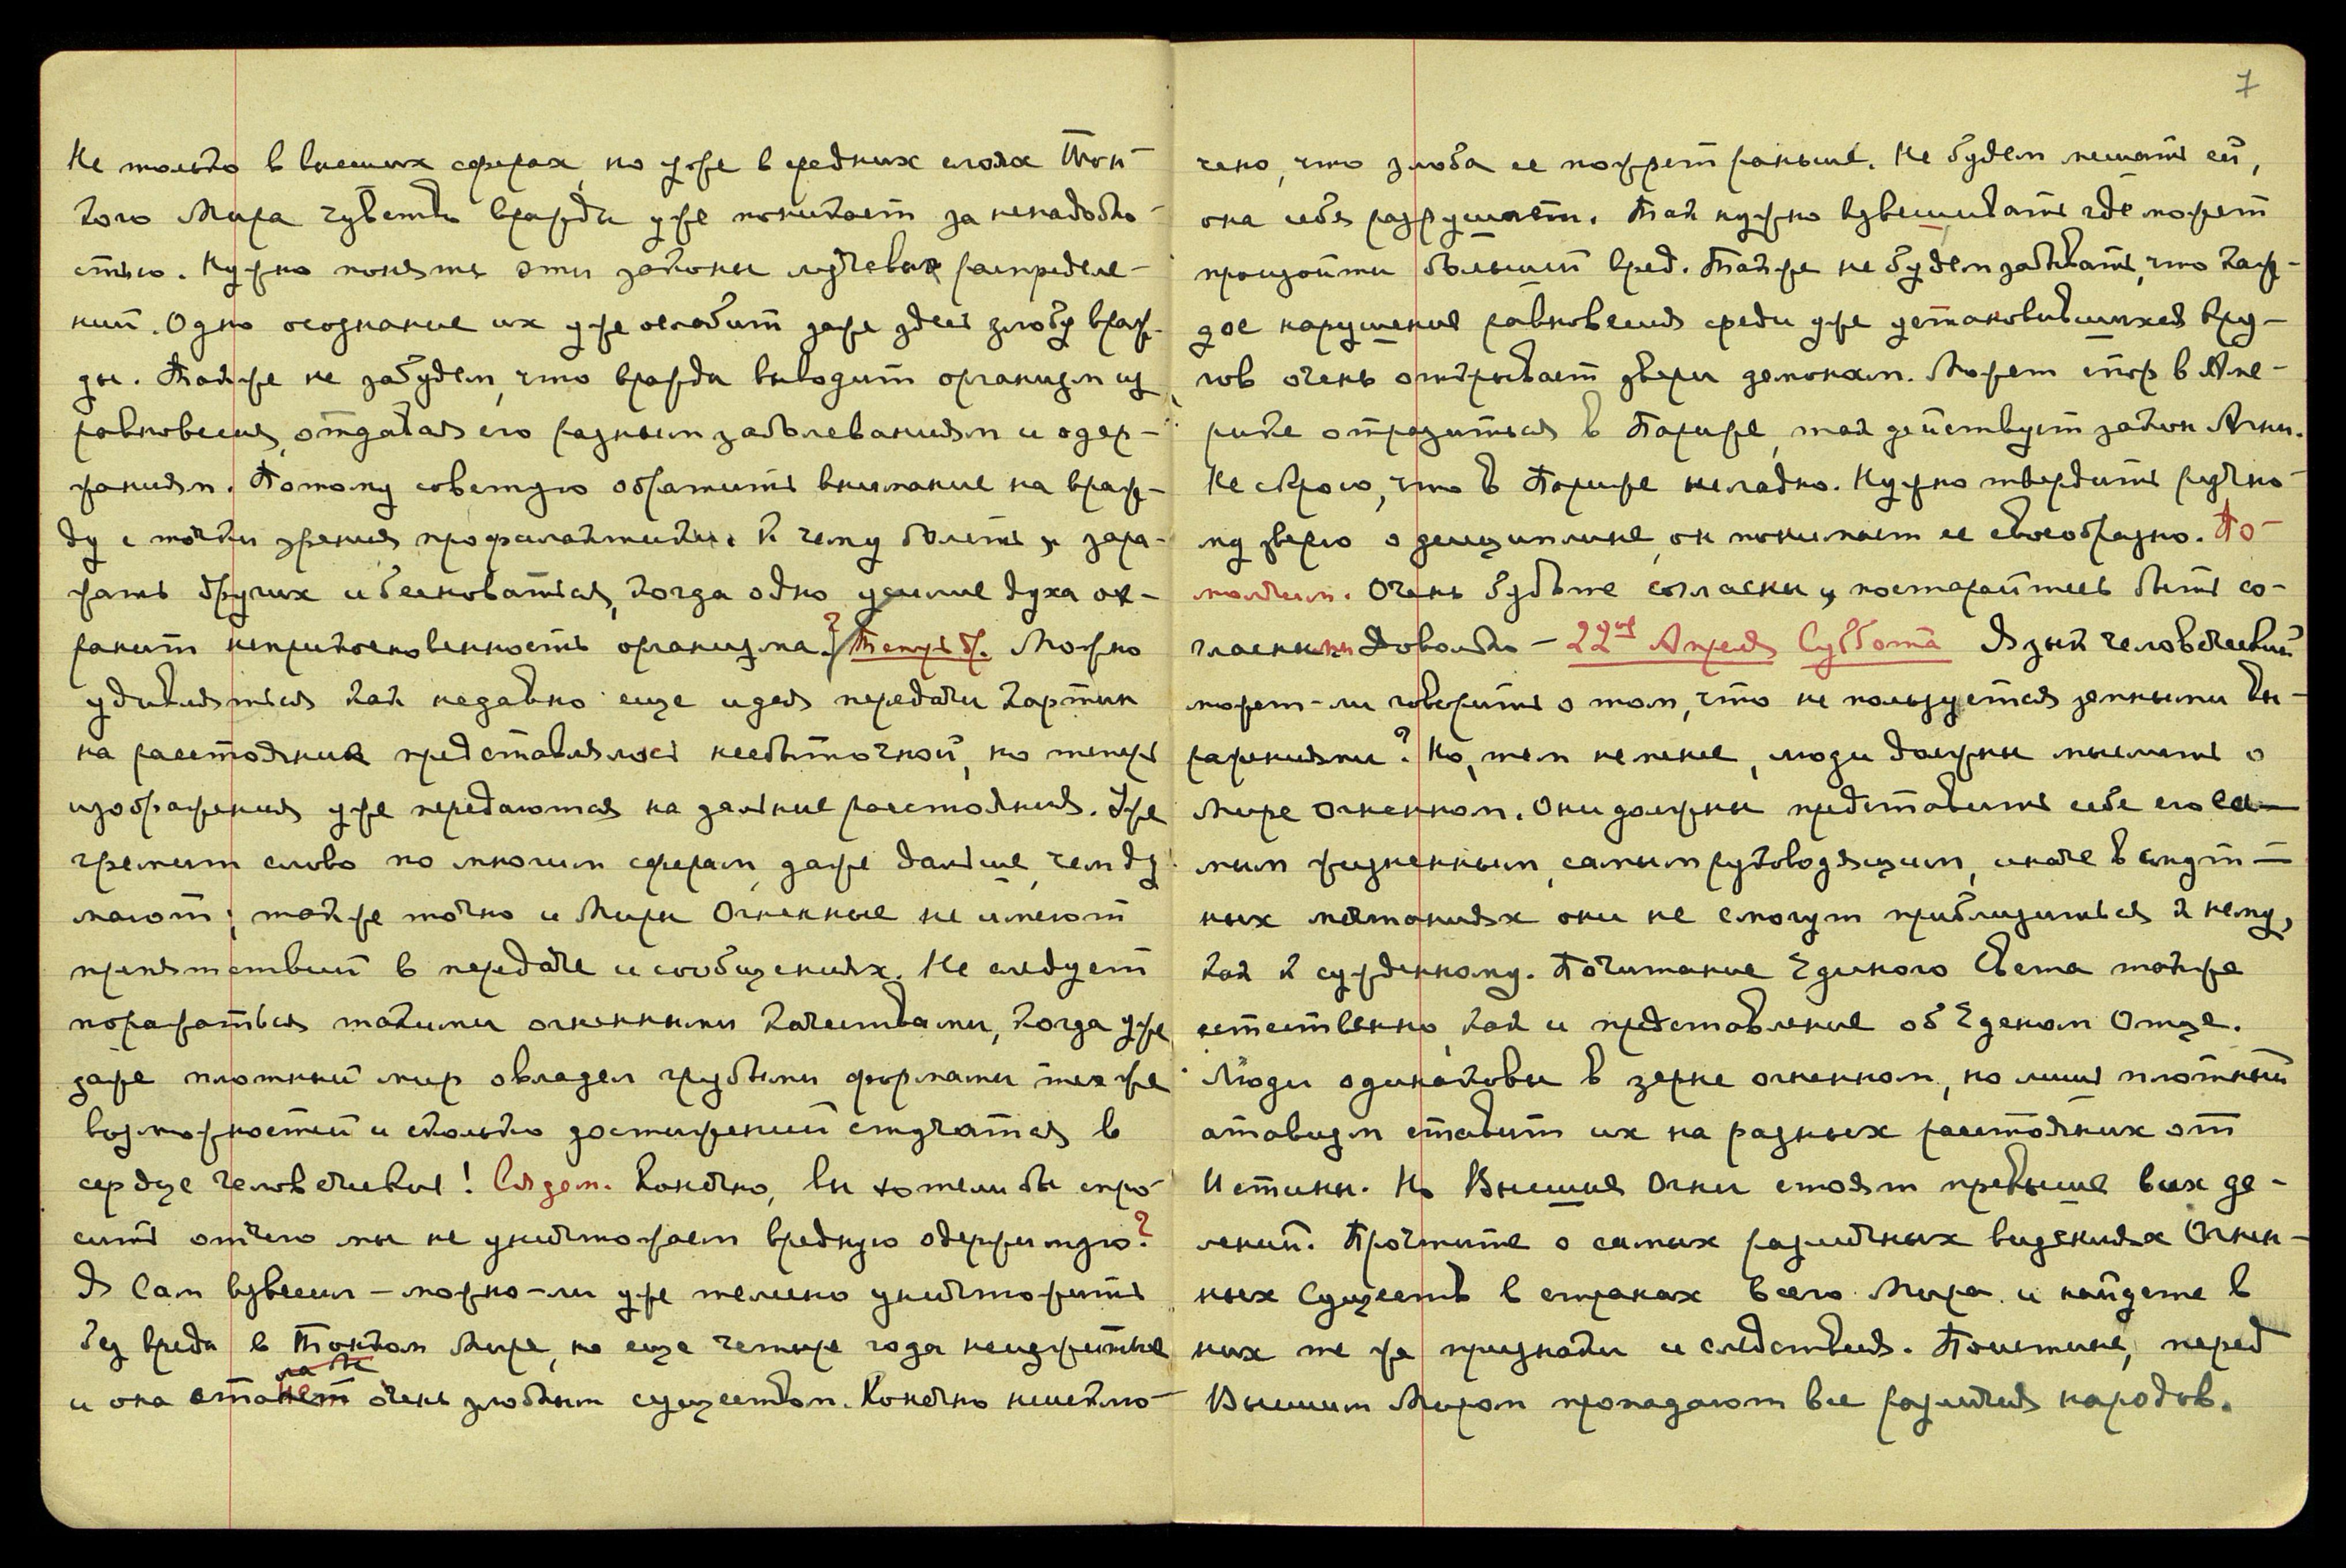 Не только в высших сферах, но уже в средних слоях Тон-
кого Мира чувство вражды уже поникает за ненадобно-
стью. Нужно понять эти законы лучевых распределе-
ний. Одно осознание их уже ослабит даже здесь злобу враж-
ды. Также не забудем, что вражда выводит организм из
равновесия, отдавая его разным заболеваниям и одер-
жаниям. Потому советую обратить внимание на враж-
ду с точки зрения профилактики. К чему болеть и зара-
жать других и бесноваться, когда одно усилие духа ох-
ранит неприкосновенность организма? Теперь др. Можно
удивляться как недавно еще идея передачи картин
на расстояния представлялась несбыточной, но теперь
изображения уже передаются на дальние расстояния. Уже
гремит слово по многим сферам, даже дальше, чем ду-
мают; также точно и Миры Огненные не имеют
препятствий в передаче и сообщениях. Не следует
поражаться такими огненными качествами, когда уже
даже плотный мир овладел грубыми формами тех же
возможностей и сколько достижений стучатся в
сердце человеческое! Сядем. Конечно, вы хотели бы спро-
сить отчего мы не уничтожаем вредную одержимую?
Я Сам взвесил – можно-ли уже телесно уничтожить
без вреда в Тонком Мире, но еще четыре года неизжитые
и она стала бы очень злобным существом. Конечно неисклю-
7
чено, что злоба ее пожрет раньше. Не будем мешать ей,
она себя разрушает. Так нужно взвешивать где может
произойти больший вред. Также не будем забывать, что каж-
дое нарушение равновесия среди уже установившихся кру-
гов очень открывает двери демонам. Может спор в Аме-
рике отразиться в Париже, так действует закон Агни.
Не скрою, что в Париже неладно. Нужно твердить ручно-
му зверю о дисциплине, он понимает ее своеобразно. По-
молчим. Очень будьте согласны, постарайтесь быть со-
гласными Довольно – 22ое Апреля Суббота Язык человеческий
может-ли говорить о том, что не пользуется земными вы-
ражениями? Но, тем не менее, люди должны мыслить о
Мире Огненном. Они должны представить себе его са-
мым жизненным, самым руководящим, иначе в смут-
ных метаниях они не смогут приблизиться к нему,
как к суженному. Почитание Единого Света также
естественно, как и представление об Едином Отце.
Люди одинаковы в зерне огненном, но лишь плотный
атавизм ставит их на разных расстояниях от
Истины. Но Высшие Огни стоят превыше всех де-
лений. Прочтите о самых различных видениях Огнен-
ных Существ в странах всего Мира и найдете в
них те же признаки и следствия. Поистине, перед
Высшим Миром пропадают все различия народов.